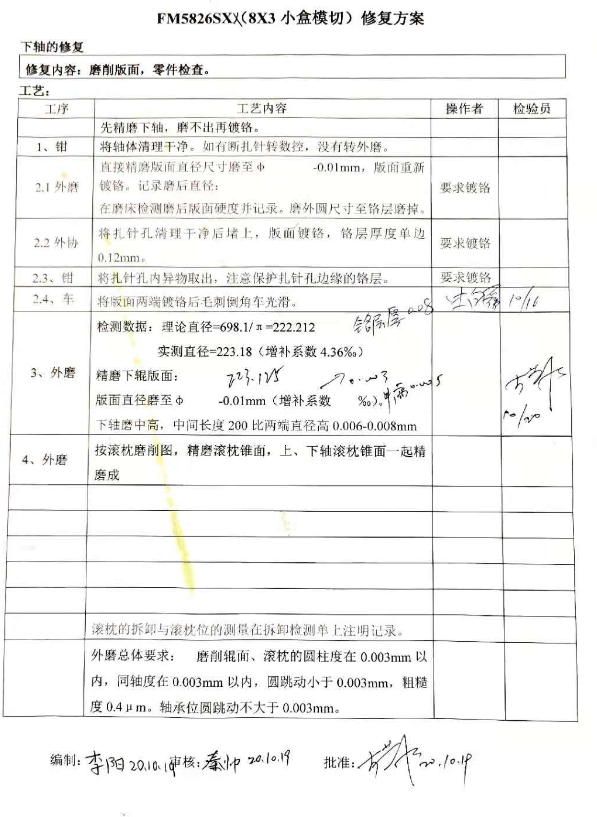 FM5826SX（8X3 小盒模切）修复方案
下轴的修复
修复内容：磨削版面，零件检查。
工艺：
工序 工艺内容 操作者 检验员
先精磨下轴，磨不出再镀铬。
1、钳 将轴体清理干净。如有断扎针转数控，没有转外磨。
2.1 外磨 直接精磨版面直径尺寸磨至φ -0.01mm，版面重新
镀铬。记录磨后直径： 要求镀铬
在磨床检测磨后版面硬度并记录。磨外圆尺寸至铬层磨掉。
2.2 外协 将扎针孔清理干净后堵上，版面镀铬，铬层厚度单边 要求镀铬
0.12mm。
2.3、钳 将扎针孔内异物取出，注意保护扎针孔边缘的铬层。 要求镀铬
2.4、车 将版面两端镀铬后毛刺倒角车光滑。 10/16
检测数据：理论直径=698.1/π=222.212 铬层厚0.08
实测直径=223.18（增补系数 4.36‰）
3、外磨 精磨下辊版面： 223.125 →0.003
版面直径磨至φ -0.01mm（增补系数 ‰）。 0.005 10/20
下轴磨中高，中间长度 200 比两端直径高 0.006-0.008mm
4、外磨 按滚枕磨削图，精磨滚枕锥面，上、下轴滚枕锥面一起精
磨成
滚枕的拆卸与滚枕位的测量在拆卸检测单上注明记录。
外磨总体要求： 磨削辊面、滚枕的圆柱度在 0.003mm 以
内，同轴度在 0.003mm 以内，圆跳动小于 0.003mm，粗糙
度 0.4μm。轴承位圆跳动不大于 0.003mm。
编制：李阳 20.10.19 审核：秦帅 20.10.19 批准： 20.10.19